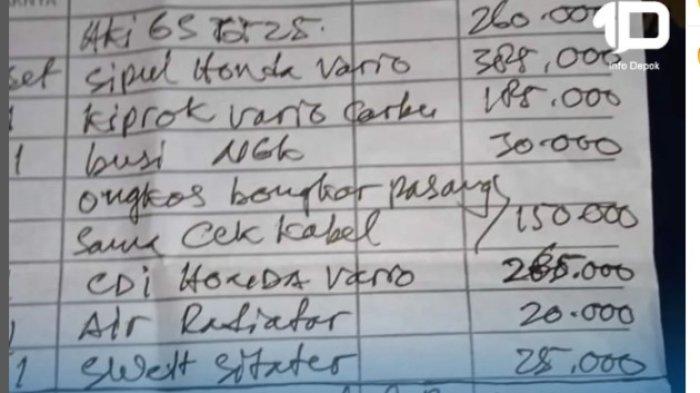 Aki GS 260.000
1D
Info Depok
set Sipul Honda Vario 385,000
1 Kiprok Vario Carbu 185.000
1 busi NGK 30.000
ongkos bongkar pasang
sama Cek Kabel 150.000
CDi HONDA Vario 000
1 Air Radiator 20.000
1 Swett Sitater 25,000